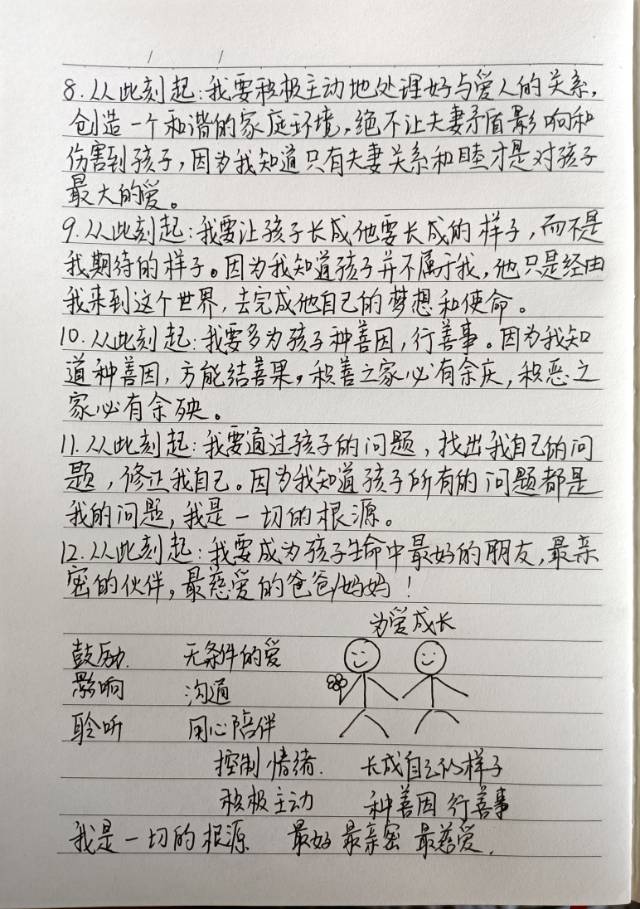 8.从此刻起:我要积极主动地处理好与爱人的关系,
创造一个和谐的家庭环境,绝不让夫妻矛盾影响和
伤害到孩子,因为我知道只有夫妻关系和睦才是对孩子
最大的爱。
9.从此刻起:我要让孩子长成他要长成的样子,而不是
我期待的样子。因为我知道孩子并不属于我,他只是经由
我来到这个世界,去完成他自己的梦想和使命。
10.从此刻起:我要多为孩子种善因,行善事。因为我知
道种善因,方能结善果,积善之家必有余庆,积恶之
家必有余殃。
11.从此刻起:我要通过孩子的问题,找出我自己的问
题,修正我自己。因为我知道孩子所有的问题都是
我的问题,我是一切的根源。
12.从此刻起:我要成为孩子生命中最好的朋友,最亲
密的伙伴,最慈爱的爸爸/妈妈!
为爱成长
鼓励. 无条件的爱
影响 沟通
聆听 用心陪伴
控制情绪. 长成自己的样子
积极主动 种善因 行善事
我是一切的根源 最好 最亲密 最慈爱.